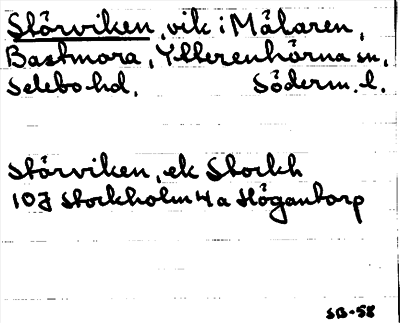 Störviken, vik i Mälaren,
Bastmora, Ytterenhörna sn,
Selebo hd. Söderm. l.
Störviken, ek Stockh
10J Stockholm 4 a Högantorp
SB-58